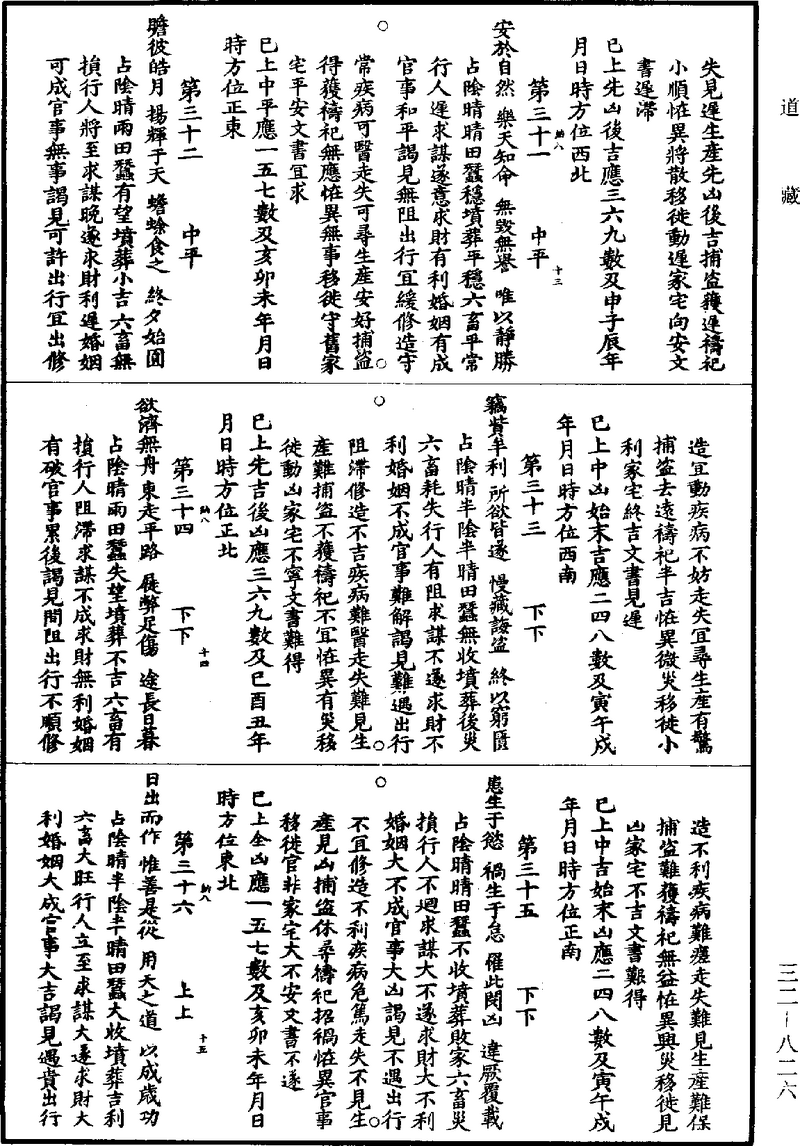 道藏
失見遲生產先凶後吉捕盜獲遲禱祀
小順恠異將散移徙動遲家宅向安文
書遲滯
已上先凶後吉應三六九數及申子辰年
月日時方位西北
第三十一 中平
納八 十三
安於自然 樂天知命 無毀無譽 唯以靜勝
占陰晴晴田蠶穩墳葬平穩六畜平常
行人遲求謀遂意求財有利婚姻有成
官事和平謁見無阻出行宜緩修造守
常疾病可醫走失可尋生產安好捕盜
得獲禱祀無應恠異無事移徙守舊家
宅平安文書宜求
已上中平應一五七數及亥卯未年月日
時方位正東
第三十二 中平
瞻彼皓月 揚輝于天 蟾蜍食之 終夕始圓
占陰晴雨田蠶有望墳葬小吉六畜無
損行人將至求謀晚遂求財利遲婚姻
可成官事無事謁見可許出行宜出修
造宜動疾病不妨走失宜尋生產有驚
捕盜去遠禱祀半吉恠異微災移徙小
利家宅終吉文書見遲
已上中凶始末吉應二四八數及寅午戌
年月日時方位西南
第三十三 下下
竊貲牟利 所欲皆遂 慢藏誨盜 終以窮匱
占陰晴半陰半晴田蠶無收墳葬後災
六畜耗失行人有阻求謀不遂求財不
利婚姻不成官事難解謁見難遇出行
阻滯修造不吉疾病難醫走失難見生
產難捕盜不獲禱祀不宜恠異有災移
徙動凶家宅不寧文書難得
已上先吉後凶應三六九數及巳酉丑年
月日時方位正北
第三十四 下下
納八 十四
欲濟無舟 東走平路 屣弊足傷 途長日暮
占陰晴雨田蠶失望墳葬不吉六畜有
損行人阻滯求謀不成求財無利婚姻
有破官事累後謁見間阻出行不順修
造不利疾病難瘥走失難見生產難保
捕盜難獲禱祀無益恠異興災移徙見
凶家宅不吉文書艱得
已上中吉始末凶應二四八數及寅午戌
年月日時方位正南
第三十五 下下
患生于慾 禍生于怠 罹此閔凶 違厥覆載
占陰晴晴田蠶不收墳葬敗家六畜災
損行人不廻求謀大不遂求財大不利
婚姻大不成官事大凶謁見不遇出行
不宜修造不利疾病危篤走失不見生
產見凶捕盜休尋禱祀招禍恠異官事
移徙官非家宅大不安文書不遂
已上全凶應一五七數及亥卯未年月日
時方位東北
第三十六 上上
納八 十五
日出而作 惟善是從 用天之道 以成歲功
占陰晴半陰半晴田蠶大收墳葬吉利
六畜大旺行人立至求謀大遂求財大
利婚姻大成官事大吉謁見遇貴出行
三二－八二六